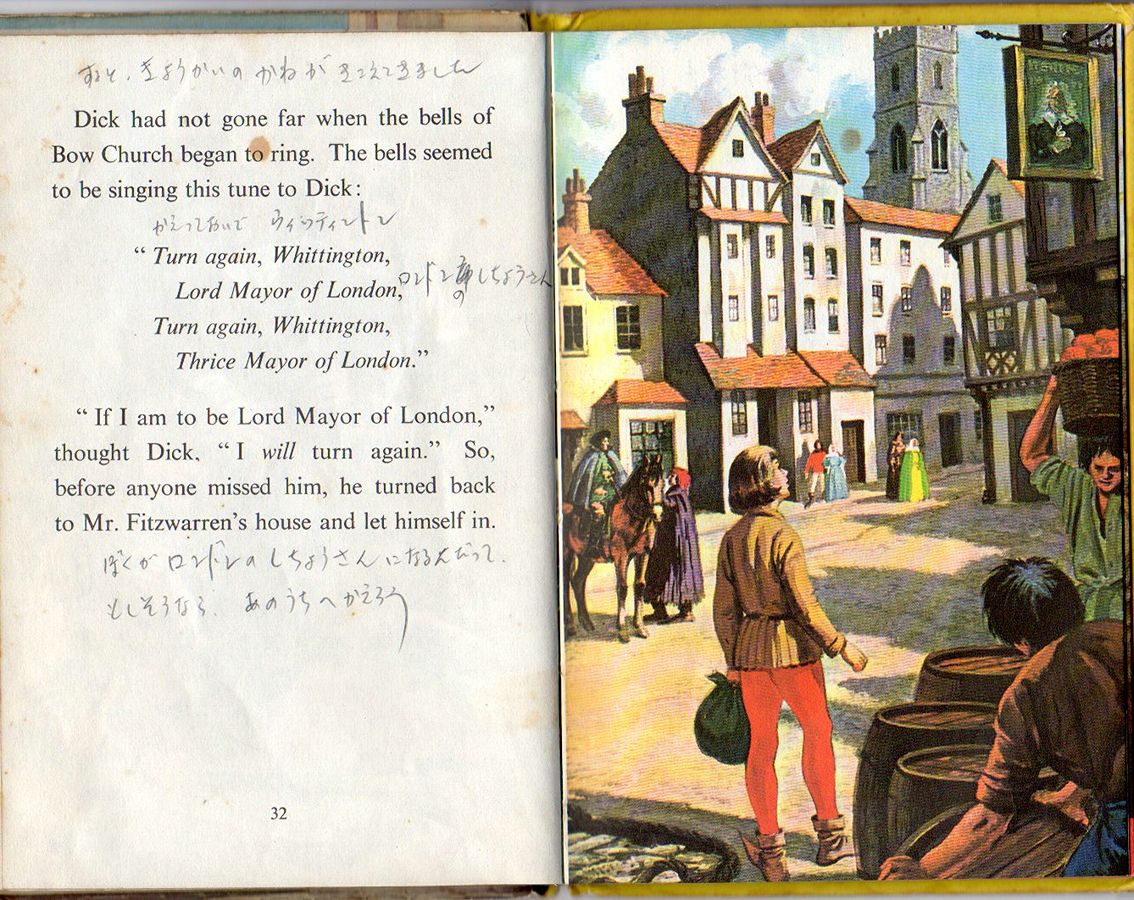 すると、きょうかいの かねが きこえてきました
Dick had not gone far when the bells of
Bow Church began to ring. The bells seemed
to be singing this tune to Dick:
かえっておいで ウィッティントン
“ Turn again, Whittington,
Lord Mayor of London,
ロンドン
の しちょうさん
Turn again, Whittington,
Thrice Mayor of London.”
“ If I am to be Lord Mayor of London,”
thought Dick, “ I will turn again.” So,
before anyone missed him, he turned back
to Mr. Fitzwarren's house and let himself in.
ぼくが ロンドンのしちょうさんになるんだって.
もしそうなら、あのうちへかえろう
32